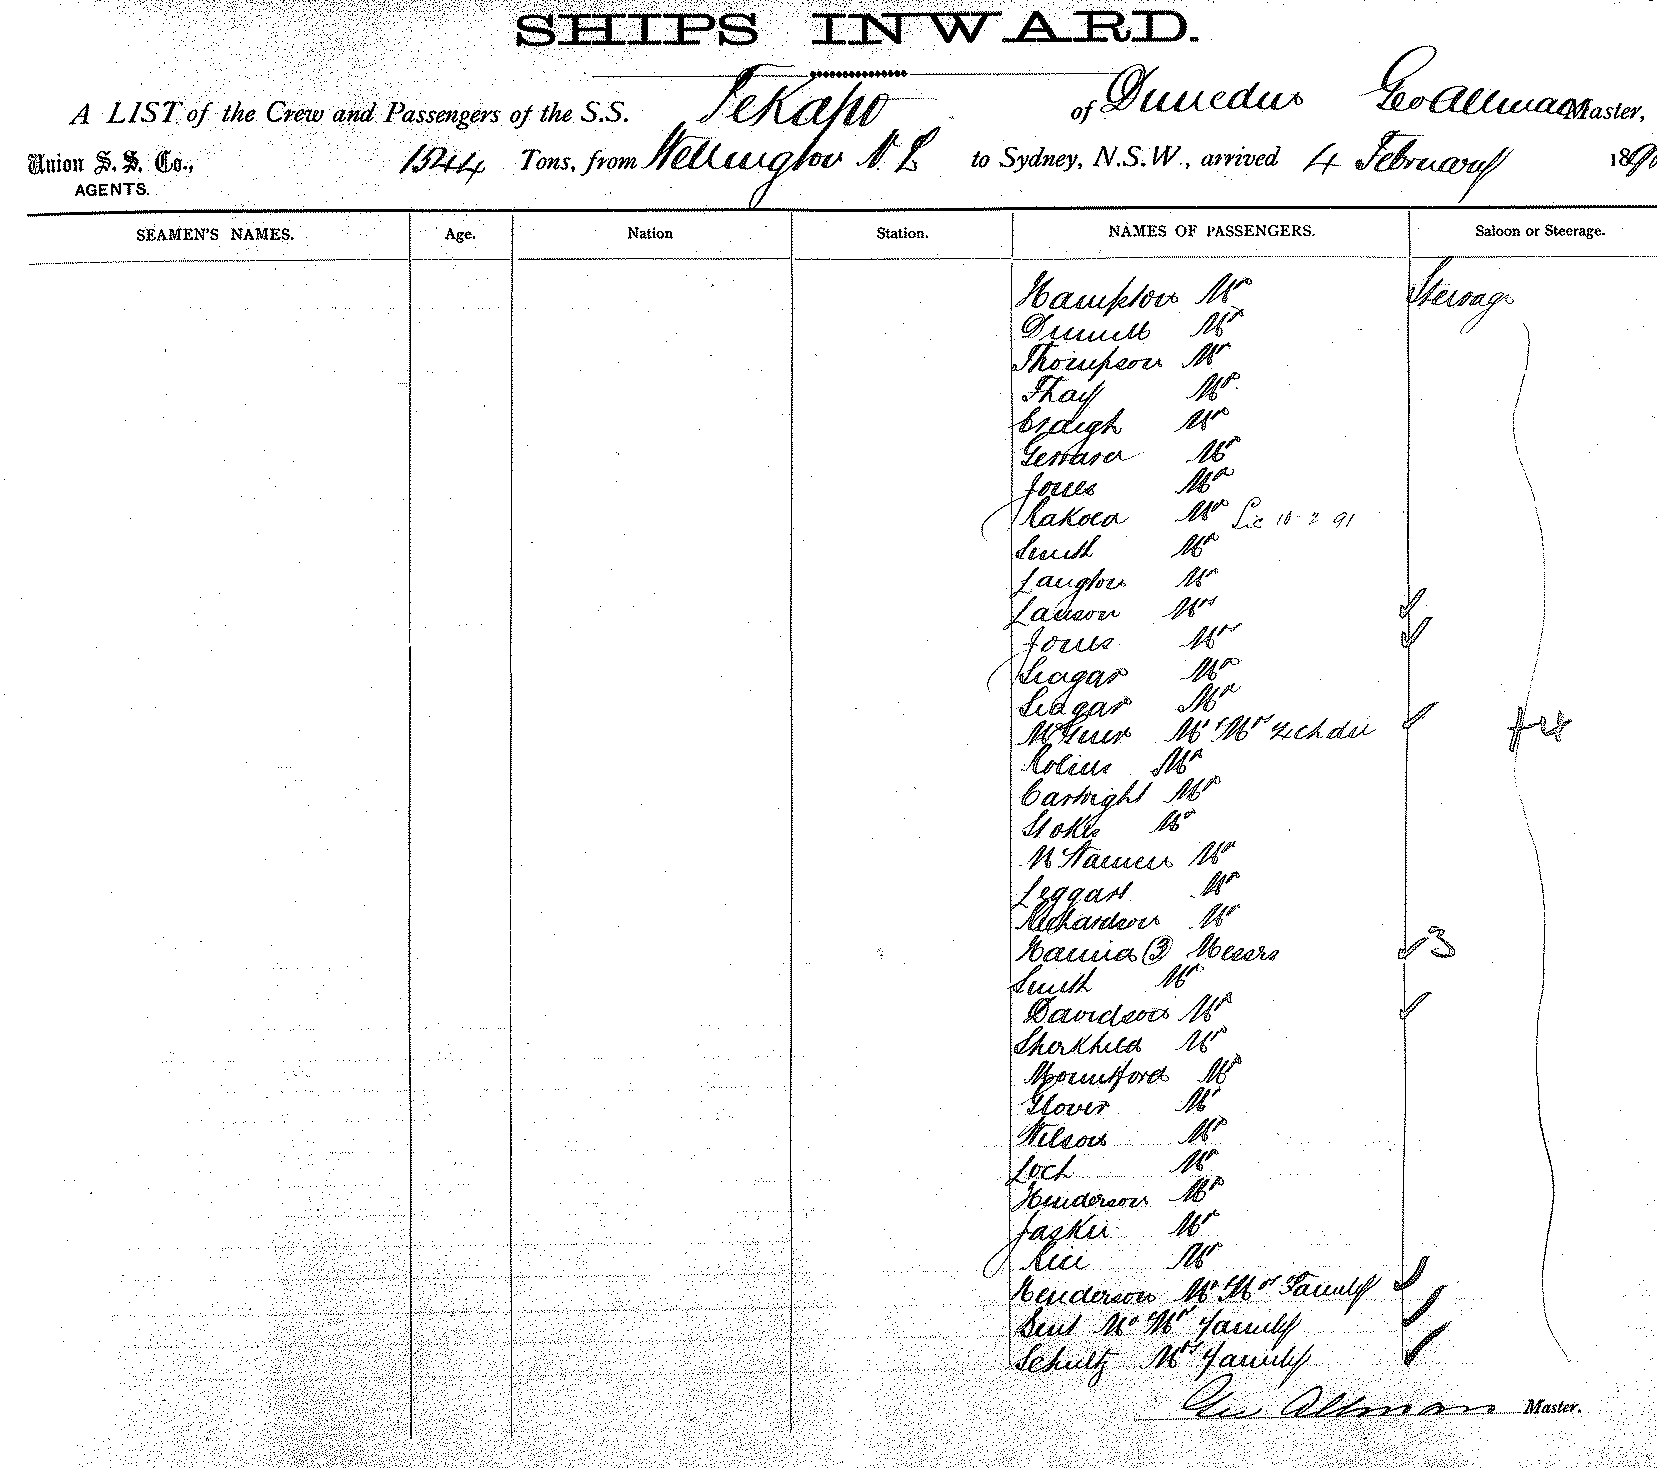 SHIPS INWARD.
A LIST of the Crew and Passengers of the S.S. Tekapo of Dunedin Geo Allman Master,
Union S. S. Co., 1544 Tons, from Wellington N. Z to Sydney, N.S.W., arrived 4 February 1890
AGENTS.
SEAMEN'S NAMES. Age. Nation Station. NAMES OF PASSENGERS. Saloon or Steerage.
Hampton Mr Steerage
Mr
Thompson Mr
Thay Mr
Craigh Mr
Gerrard Mr
Jones Mr
Mr Lic 10 2 91
Smith Mr
Langton Mr
Lawson Mrs
Jones Mrs
Seagar Mr
Seagar Mr
Mr Mrs
Rolins Mr
Cartwright Mr
Stokes Mr
Mr
Leggart Mr
Richardson Mr
Hanna (3) Messrs 3
Smith Mr
Davidson Mr
Mr
Mountford Mr
Glover Mr
Wilson Mr
Loch Mr
Henderson Mr
Mr
Rice Mr
Henderson Mr Mrs Family
Mr Mrs Family
Schultz Mrs Family
Geo Allman Master.